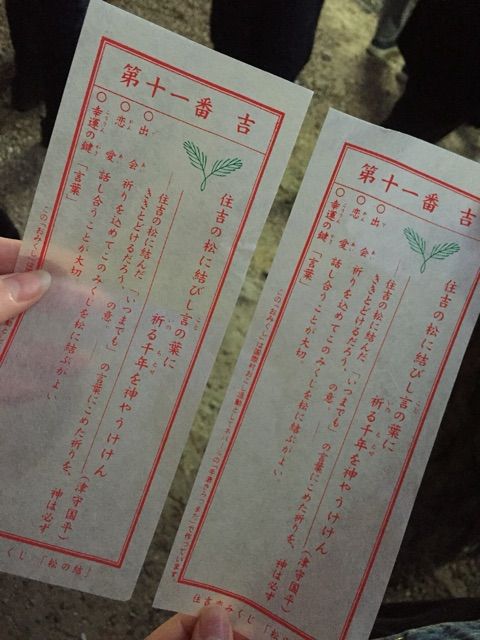 第十一番 吉
住吉の松に結びし言の葉に
祈る千年を神やうけけん
(津守国平)
住吉の松に結んだ「いつまでも」の言葉にこめた祈りを、神は必ず
ききとどけるだろう、の意。
○出会 祈りを込めてこのみくじを松に結ぶがよい
○恋愛 話し合うことが大切。
○幸運の鍵 「言葉」
この「おみく
くじ「松の結」
第十一番 吉
住吉の松に結びし言の葉に
祈る千年を神やうけけん
(津守国平)
住吉の松に結んだ「いつまでも」の言葉にこめた祈りを、神は必ず
ききとどけるだろう、の意。
○出会 祈りを込めてこのみくじを松に結ぶがよい
○恋愛 話し合うことが大切。
○幸運の鍵 「言葉」
この「おみくじ」は
住吉恋みくじ「松の結